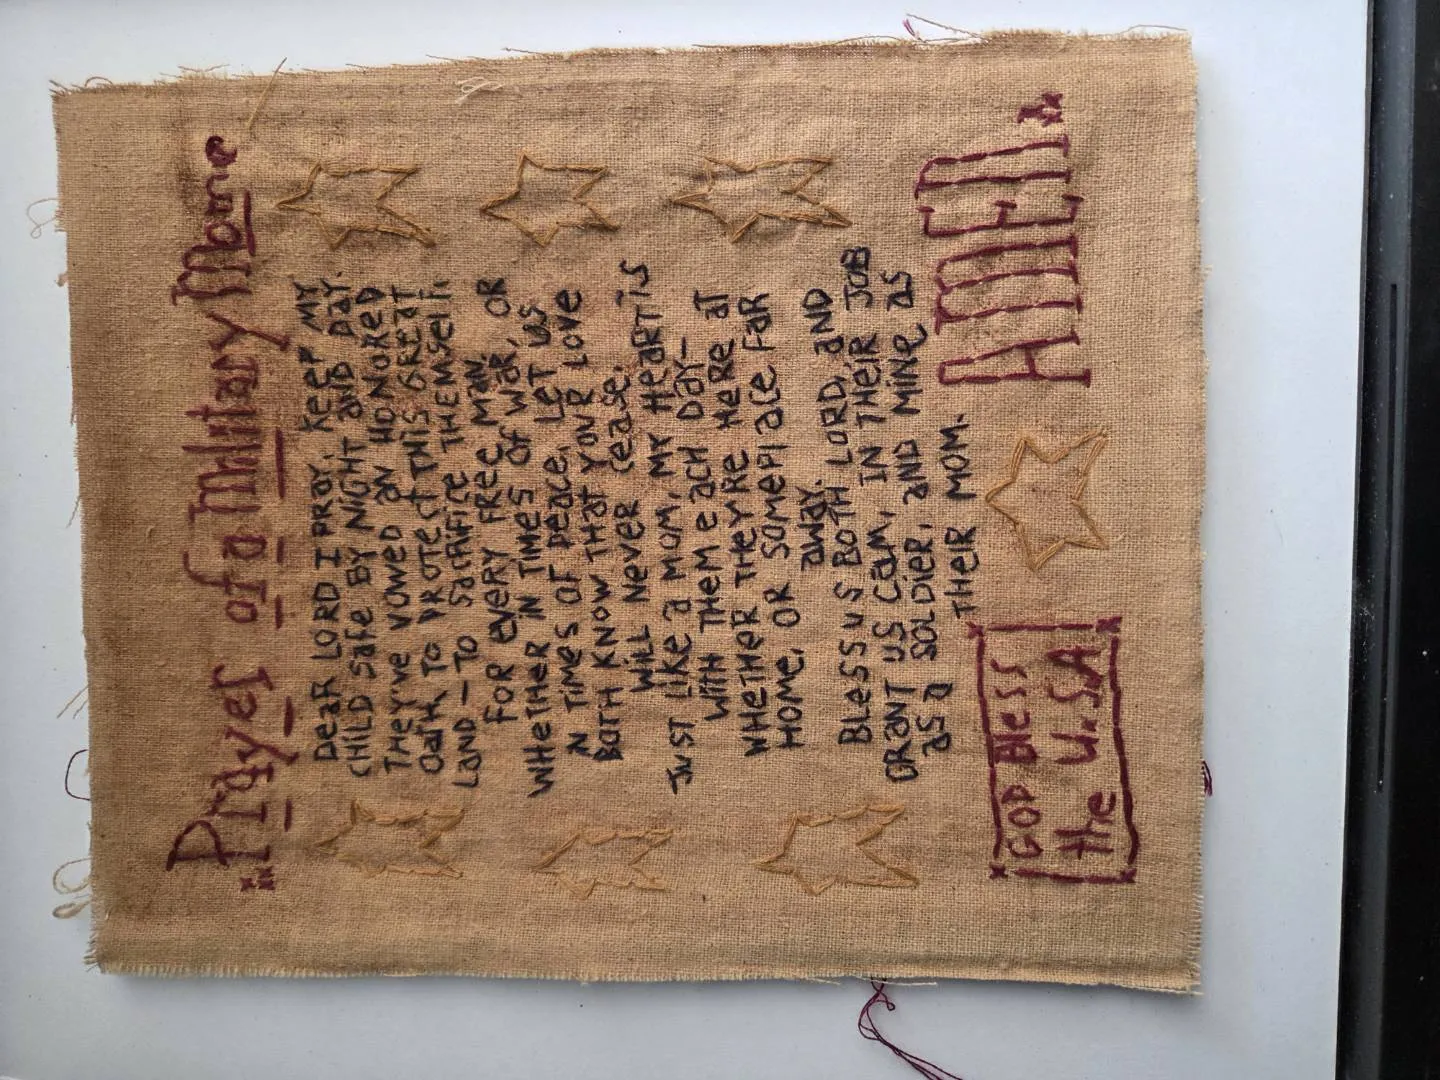 Prayer of a Military Mom
DEAR LORD I PRAY, KEEP MY
CHILD SAFE BY NIGHT AND DAY.
THEY'VE VOWED AN HONORED
OATH TO PROTECT THIS GREAT
LAND — TO SACRIFICE THEMSELF,
FOR EVERY FREE MAN.
WHETHER IN TIMES OF WAR, OR
N TIMES OF PEACE, LET US
BOTH KNOW THAT YOUR LOVE
WILL NEVER CEASE.
JUST LIKE A MOM, MY HEART IS
WITH THEM EACH DAY—
WHETHER THEY'RE HERE AT
HOME, OR SOMEPLACE FAR
AWAY.
BLESS US BOTH LORD, AND
GRANT US CALM, IN THEIR JOB
AS A SOLDIER, AND MINE AS
THEIR MOM.
AMEN
GOD BLESS
the U.S.A